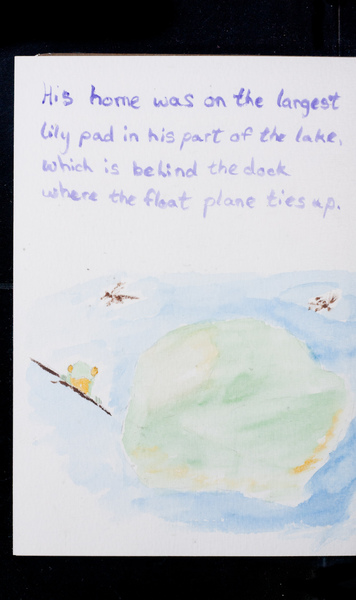 His home was on the largest
lily pad in his part of the lake,
which is behind the dock
where the float plane ties up.